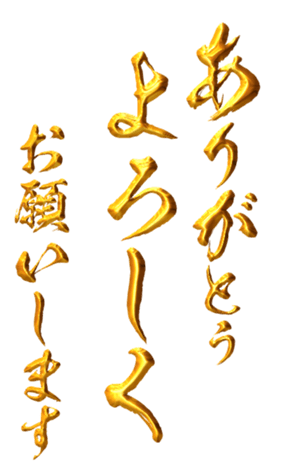 ありがとう
よろしく
お願いします